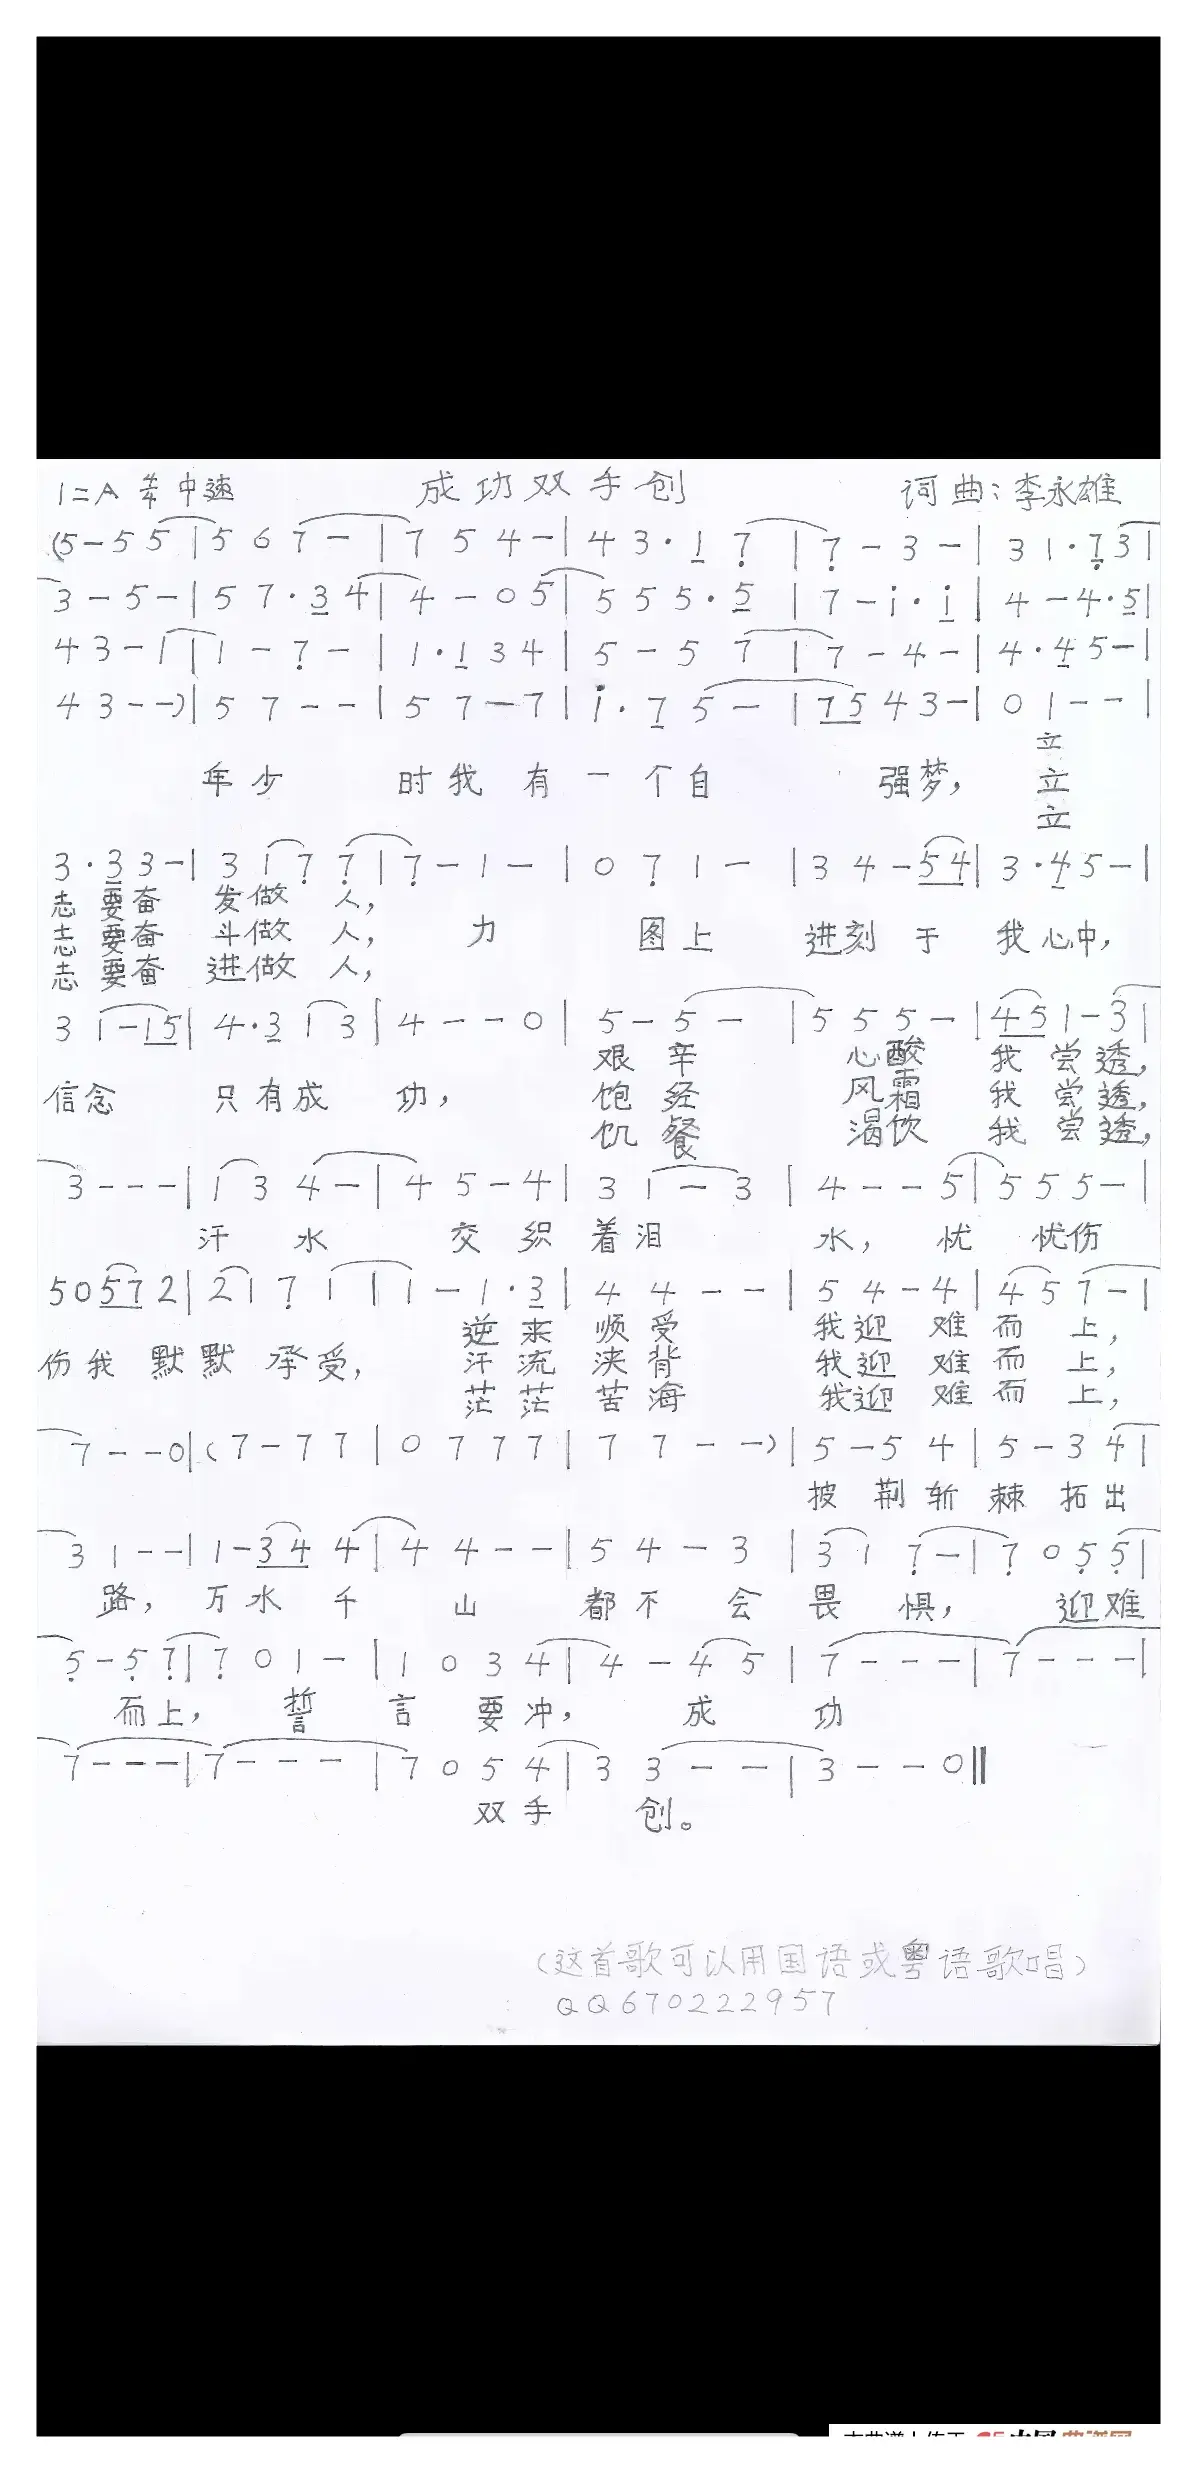 1=A 4/4 中速 成功双手创 词曲:李永雄
(5-55|567-|754-|43·17|7-3-|31·73|
3-5-|57·34|4-05|555·5|7-i·i|4-4·5|
43-1|1-7-|1·134|5-57|7-4-|4·45-|
43--)|57--|57-7|i·75-|7543-|01--|
立
年少 时我有一个自 强梦, 立
立
3·33-|3177|7-1-|071-|34-54|3·45-|
志要奋 发做人,
志要奋 斗做人, 力 图上 进刻于 我心中,
志要奋 进做人,
31-15|4·313|4--0|5-5-|555-|451-3|
艰辛 心酸 我尝透,
信念 只有成功, 饱经 风霜 我尝透,
饥餐 渴饮 我尝透,
3---|134-|45-4|31-3|4--5|555-|
汗水 交织着泪 水,忧 忧伤
50572|2171|1-1·3|44--|54-4|457-|
逆来顺受 我迎难而上,
伤我默默承受, 汗流浃背 我迎难而上,
茫茫苦海 我迎难而上,
7--0|(7-77|0777|77--)|5-54|5-34|
披荆斩棘拓出
31--|1-344|44--|54-3|317-|7055|
路,万水千山 都不会畏惧, 迎难
5-57|701-|1034|4-45|7---|7---|
而上, 誓言要冲, 成功
7---|7---|7054|33--|3--0‖
双手 创。
(这首歌可以用国语或粤语歌唱)
QQ670222957